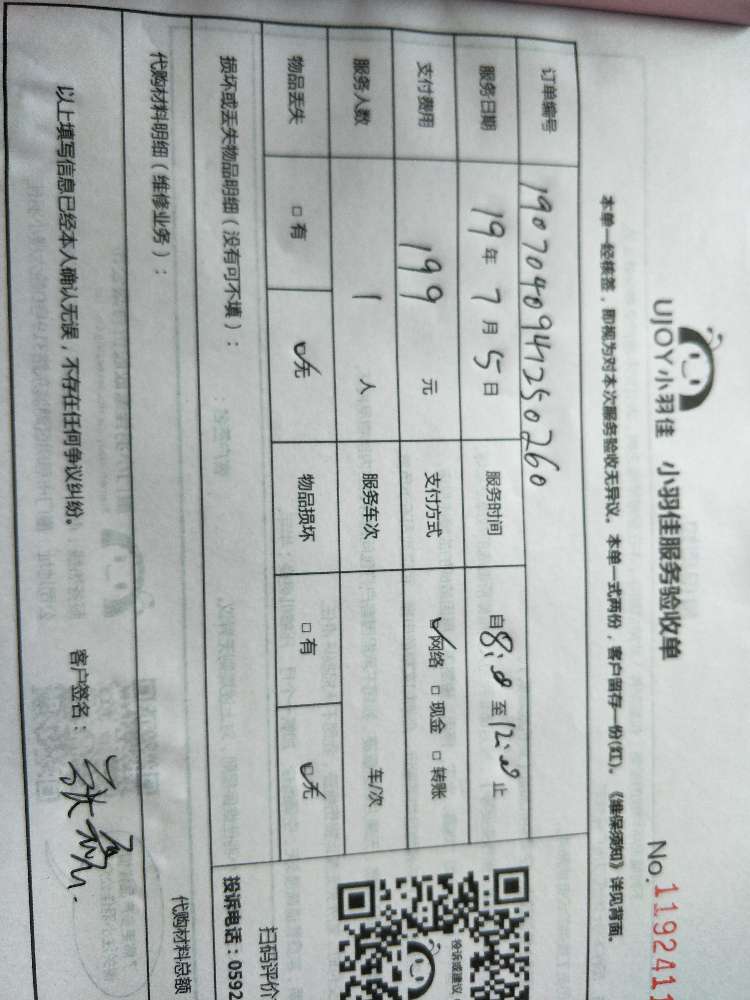 UJOY小羽佳 小羽佳服务验收单
No.1192411
本单一经核签，即视为对本次服务验收无异议。本单一式两份，客户留存一份(红)。《维保须知》详见背面。
订单编号 1907040941250260
服务日期 19年7月5日 服务时间 自8:00至12:00止
支付费用 199元 支付方式 ☑网络 □现金 □转账
服务人数 1人 服务车次 车/次
物品丢失 □有 ☑无 物品损坏 □有 ☑无
投诉或建议
扫码评价
损坏或丢失物品明细（没有可不填）：
投诉电话：0592
代购材料明细（维修业务）：
代购材料总额
以上填写信息已经本人确认无误，不存在任何争议纠纷。 客户签名：